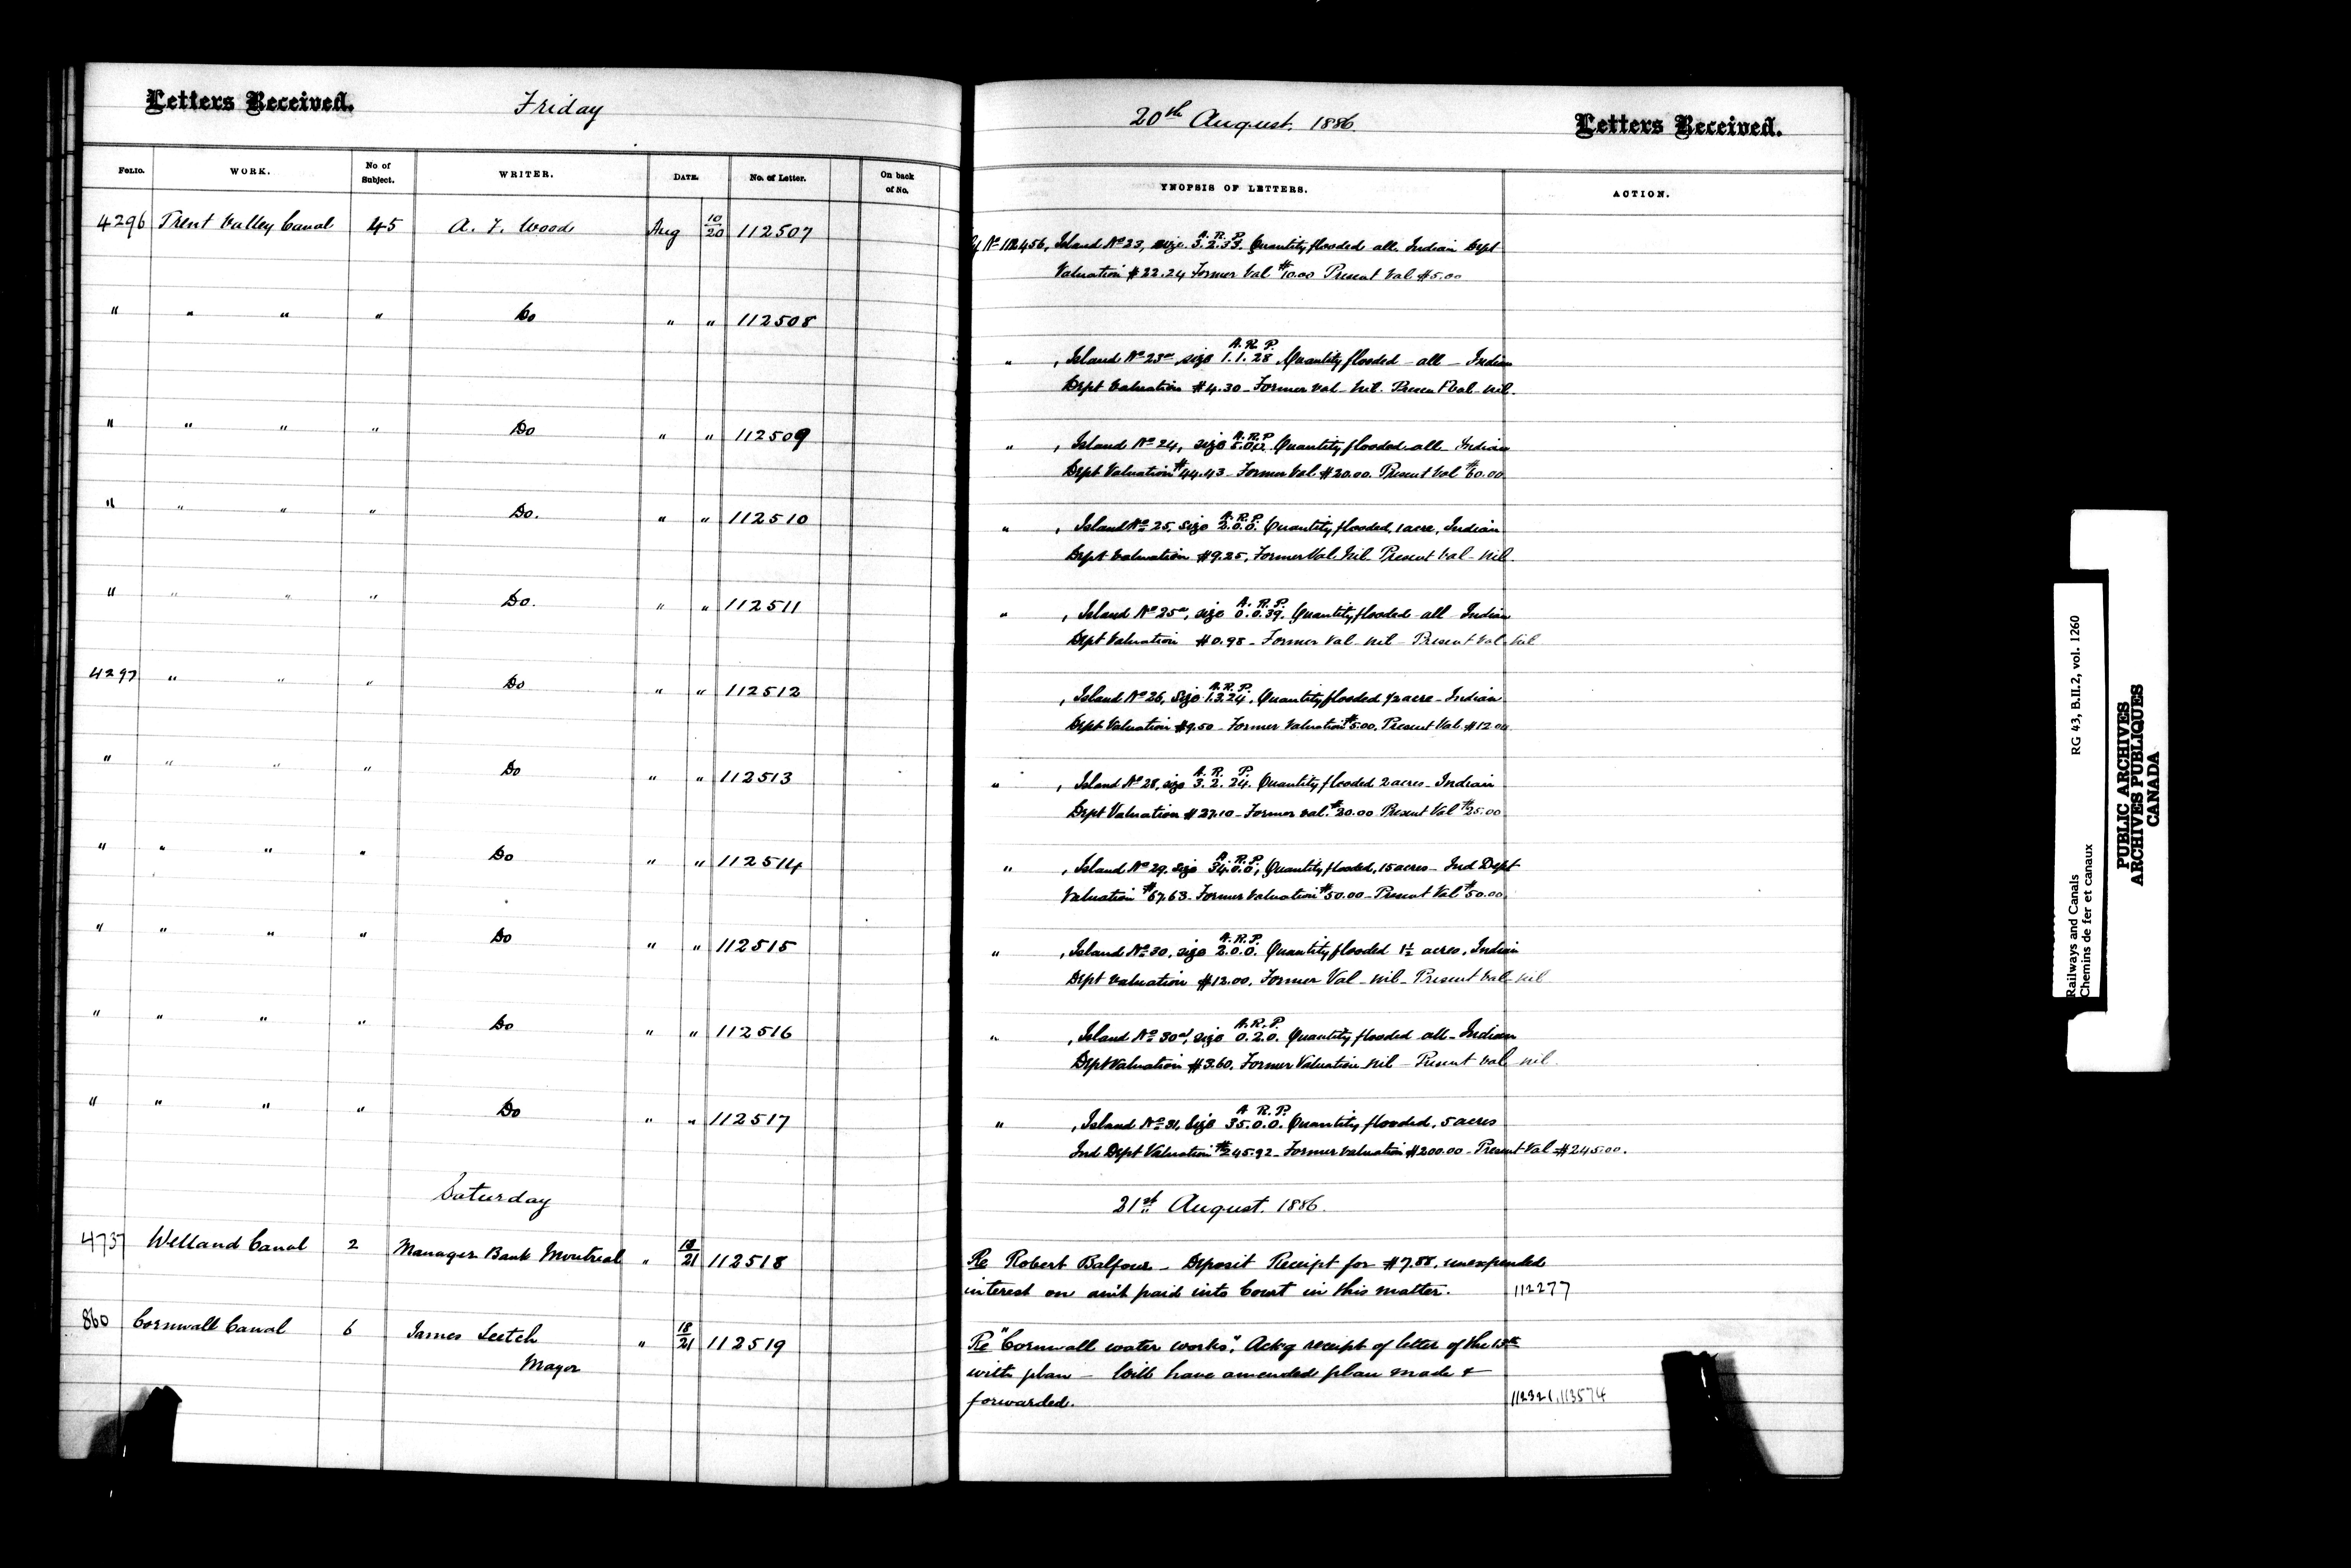 Letters Received. Friday 20th August. 1886 Letters Received.
FOLIO. WORK. No of Subject. WRITER. DATE. No. of Letter. On back of No. YNOPSIS OF LETTERS. ACTION.
4296 Trent Valley Canal 45 A. F. Wood Aug 10/20 112507 No 112456, Island No 23, size A. R. P. 3.2.33. Quantity flooded all. Indian Dept
Valuation $22.24 Former Val $10.00 Present Val $5.00
" " " " Do " " 112508
" , Island No 23a, size A. R. P. 1.1.28 Quantity flooded - all - Indian
Dept Valuation $4.30 - Former Val - Nil. Present Val - Nil.
" " " " Do " " 112509 " , Island No 24, size A. R. P. Quantity flooded - all - Indian
Dept Valuation $44.43 - Former Val $20.00. Present Val $60.00
" " " " Do. " " 112510 " , Island No 25, size A. R. P. 2.0.0. Quantity flooded, 1 acre, Indian
Dept Valuation $9.25, Former Val. Nil. Present Val - Nil.
" " " " Do. " " 112511 " , Island No 25a, size A. R. P. 0.0.39. Quantity flooded - all - Indian
Dept Valuation $0.98 - Former Val - Nil - Present Val - Nil
4297 " " " Do " " 112512 , Island No 26, Size A. R. P. 1.3.24, Quantity flooded 1/2 acre - Indian
Dept Valuation $9.50 - Former Valuation $5.00, Present Val. $12.00
" " " " Do " " 112513 " , Island No 28, size A. R. P. 3. 2. 24. Quantity flooded 2 acres - Indian
Dept Valuation $27.10 - Former Val. $20.00 Present Val $25.00
" " " " Do " " 112514 " , Island No 29, Size A. R. P. 34.0.0, Quantity flooded, 15 acres - Ind Dept
Valuation $67.63 - Former Valuation $50.00 - Present Val $50.00
" " " " Do " " 112515 " , Island No 30, size A. R. P. 2.0.0. Quantity flooded 1½ acres, Indian
Dept Valuation $12.00, Former Val - Nil - Present Val - Nil
" " " " Do " " 112516 " , Island No 30a, size A. R. P. 0.2.0. Quantity flooded all - Indian
Dept Valuation $3.60, Former Valuation Nil - Present Val - Nil.
" " " " Do " " 112517 " , Island No 31, Size A. R. P. 35.0.0. Quantity flooded, 5 acres
Ind Dept Valuation $245.92 - Former Valuation $200.00 - Present Val - $245.00.
Saturday 21st August. 1886.
4737 Welland Canal 2 Manager Bank Montreal " 18/21 112518 Re Robert Balfour - Deposit Receipt for $7.88, unexpended
interest on am't paid into Court in this matter. 112277
860 Cornwall Canal 6 James Leitch " 18/21 112519 Re "Cornwall water works", Ackg receipt of letter of the 13th
Mayor with plan - Will have amended plan made &
forwarded. 112321, 113574
Railways and Canals RG 43, B.II.2, vol. 1260
Chemins de fer et canaux
PUBLIC ARCHIVES
ARCHIVES PUBLIQUES
CANADA